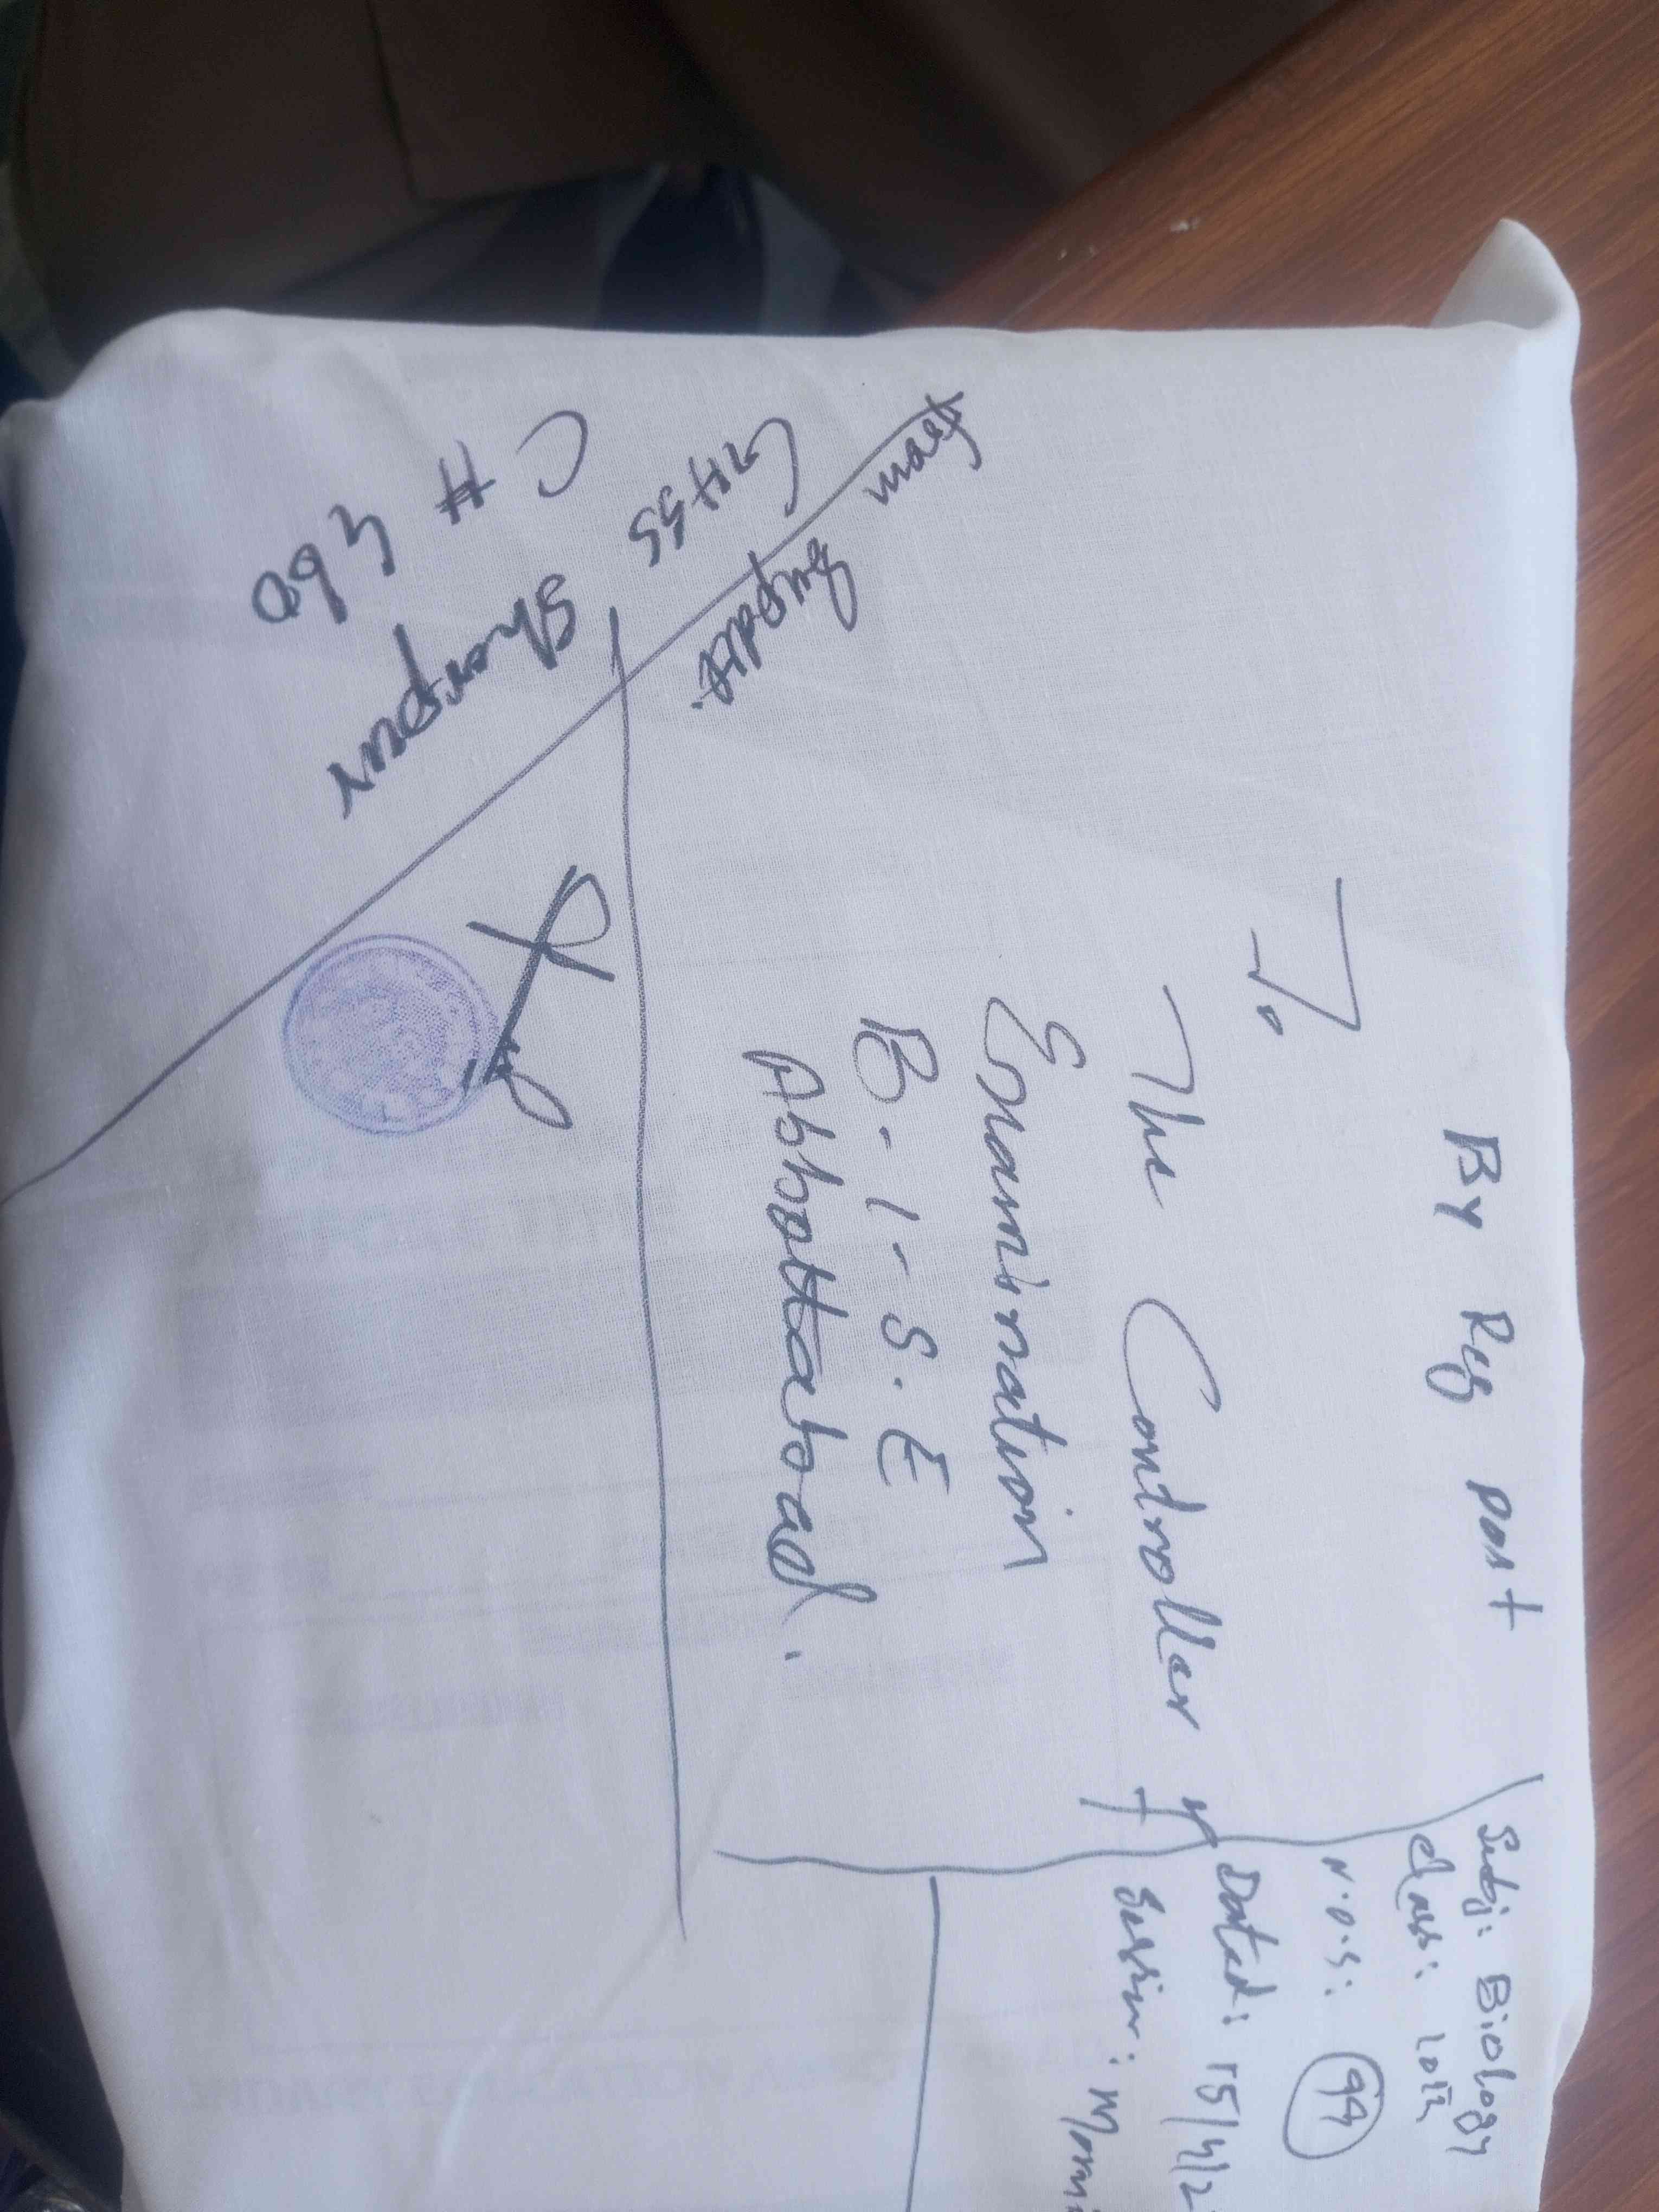 By Reg post
To,
The Controller of
Examination
B.I.S.E
Abbottabad.
Subj: Biology
Class: 10th
N.O.S: 94
Dated: 15/4/2
Session: Morni
From
Supdtt.
GHSS
Sherpur
C#